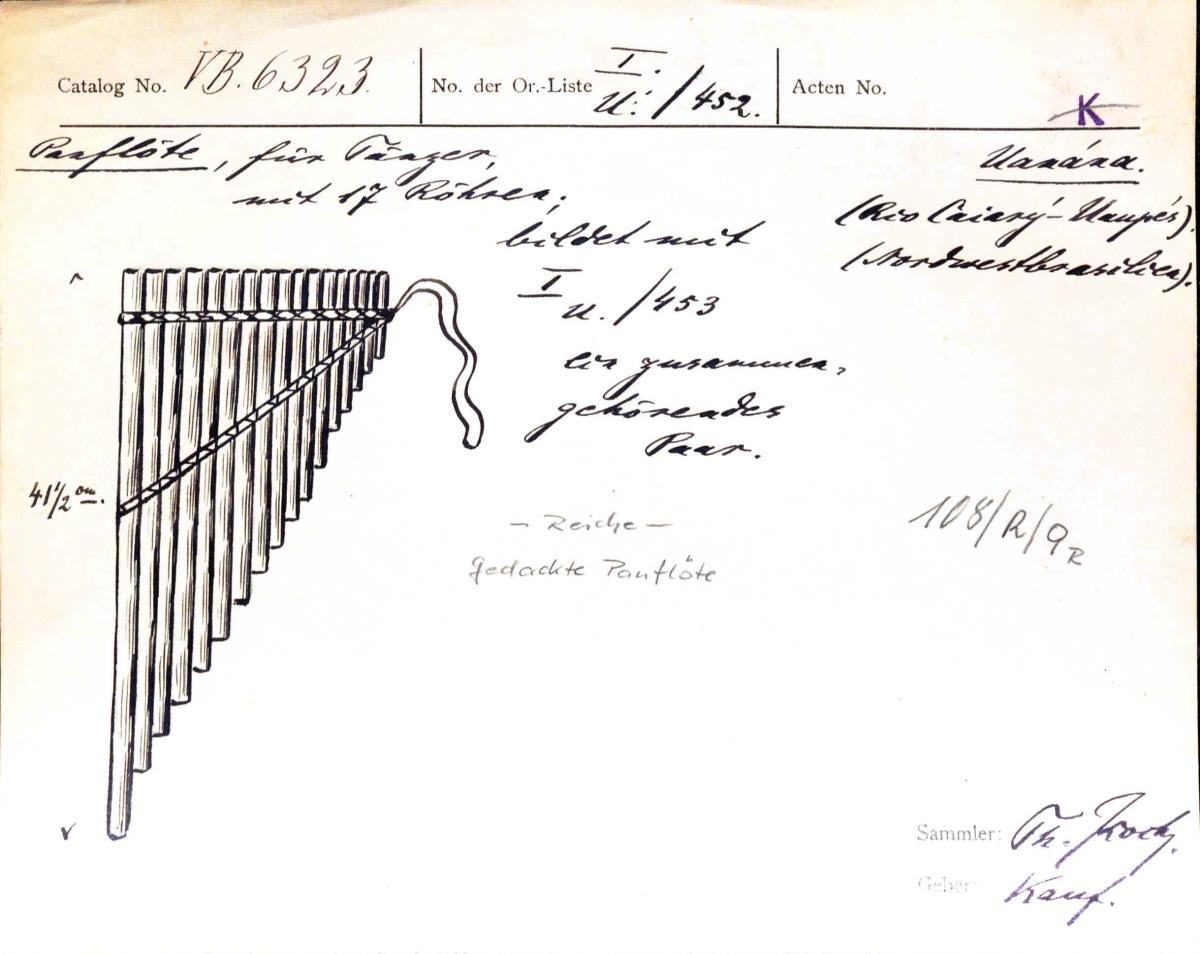 Catalog No. VB. 6323.
No. der Or.-Liste I. U. / 452.
Acten No.
K
Panflöte, für Tänzer,
mit 17 Röhren;
bildet mit
I U. / 453
ein zusammen-
gehörendes
Paar.
Uanána.
(Rio Caiarý-Uaupés).
(Nordwestbrasilien).
41 1/2 cm.
- Reihe -
gedackte Panflöte
108/R/9R
Sammler: Th. Koch.
Geber: Kauf.